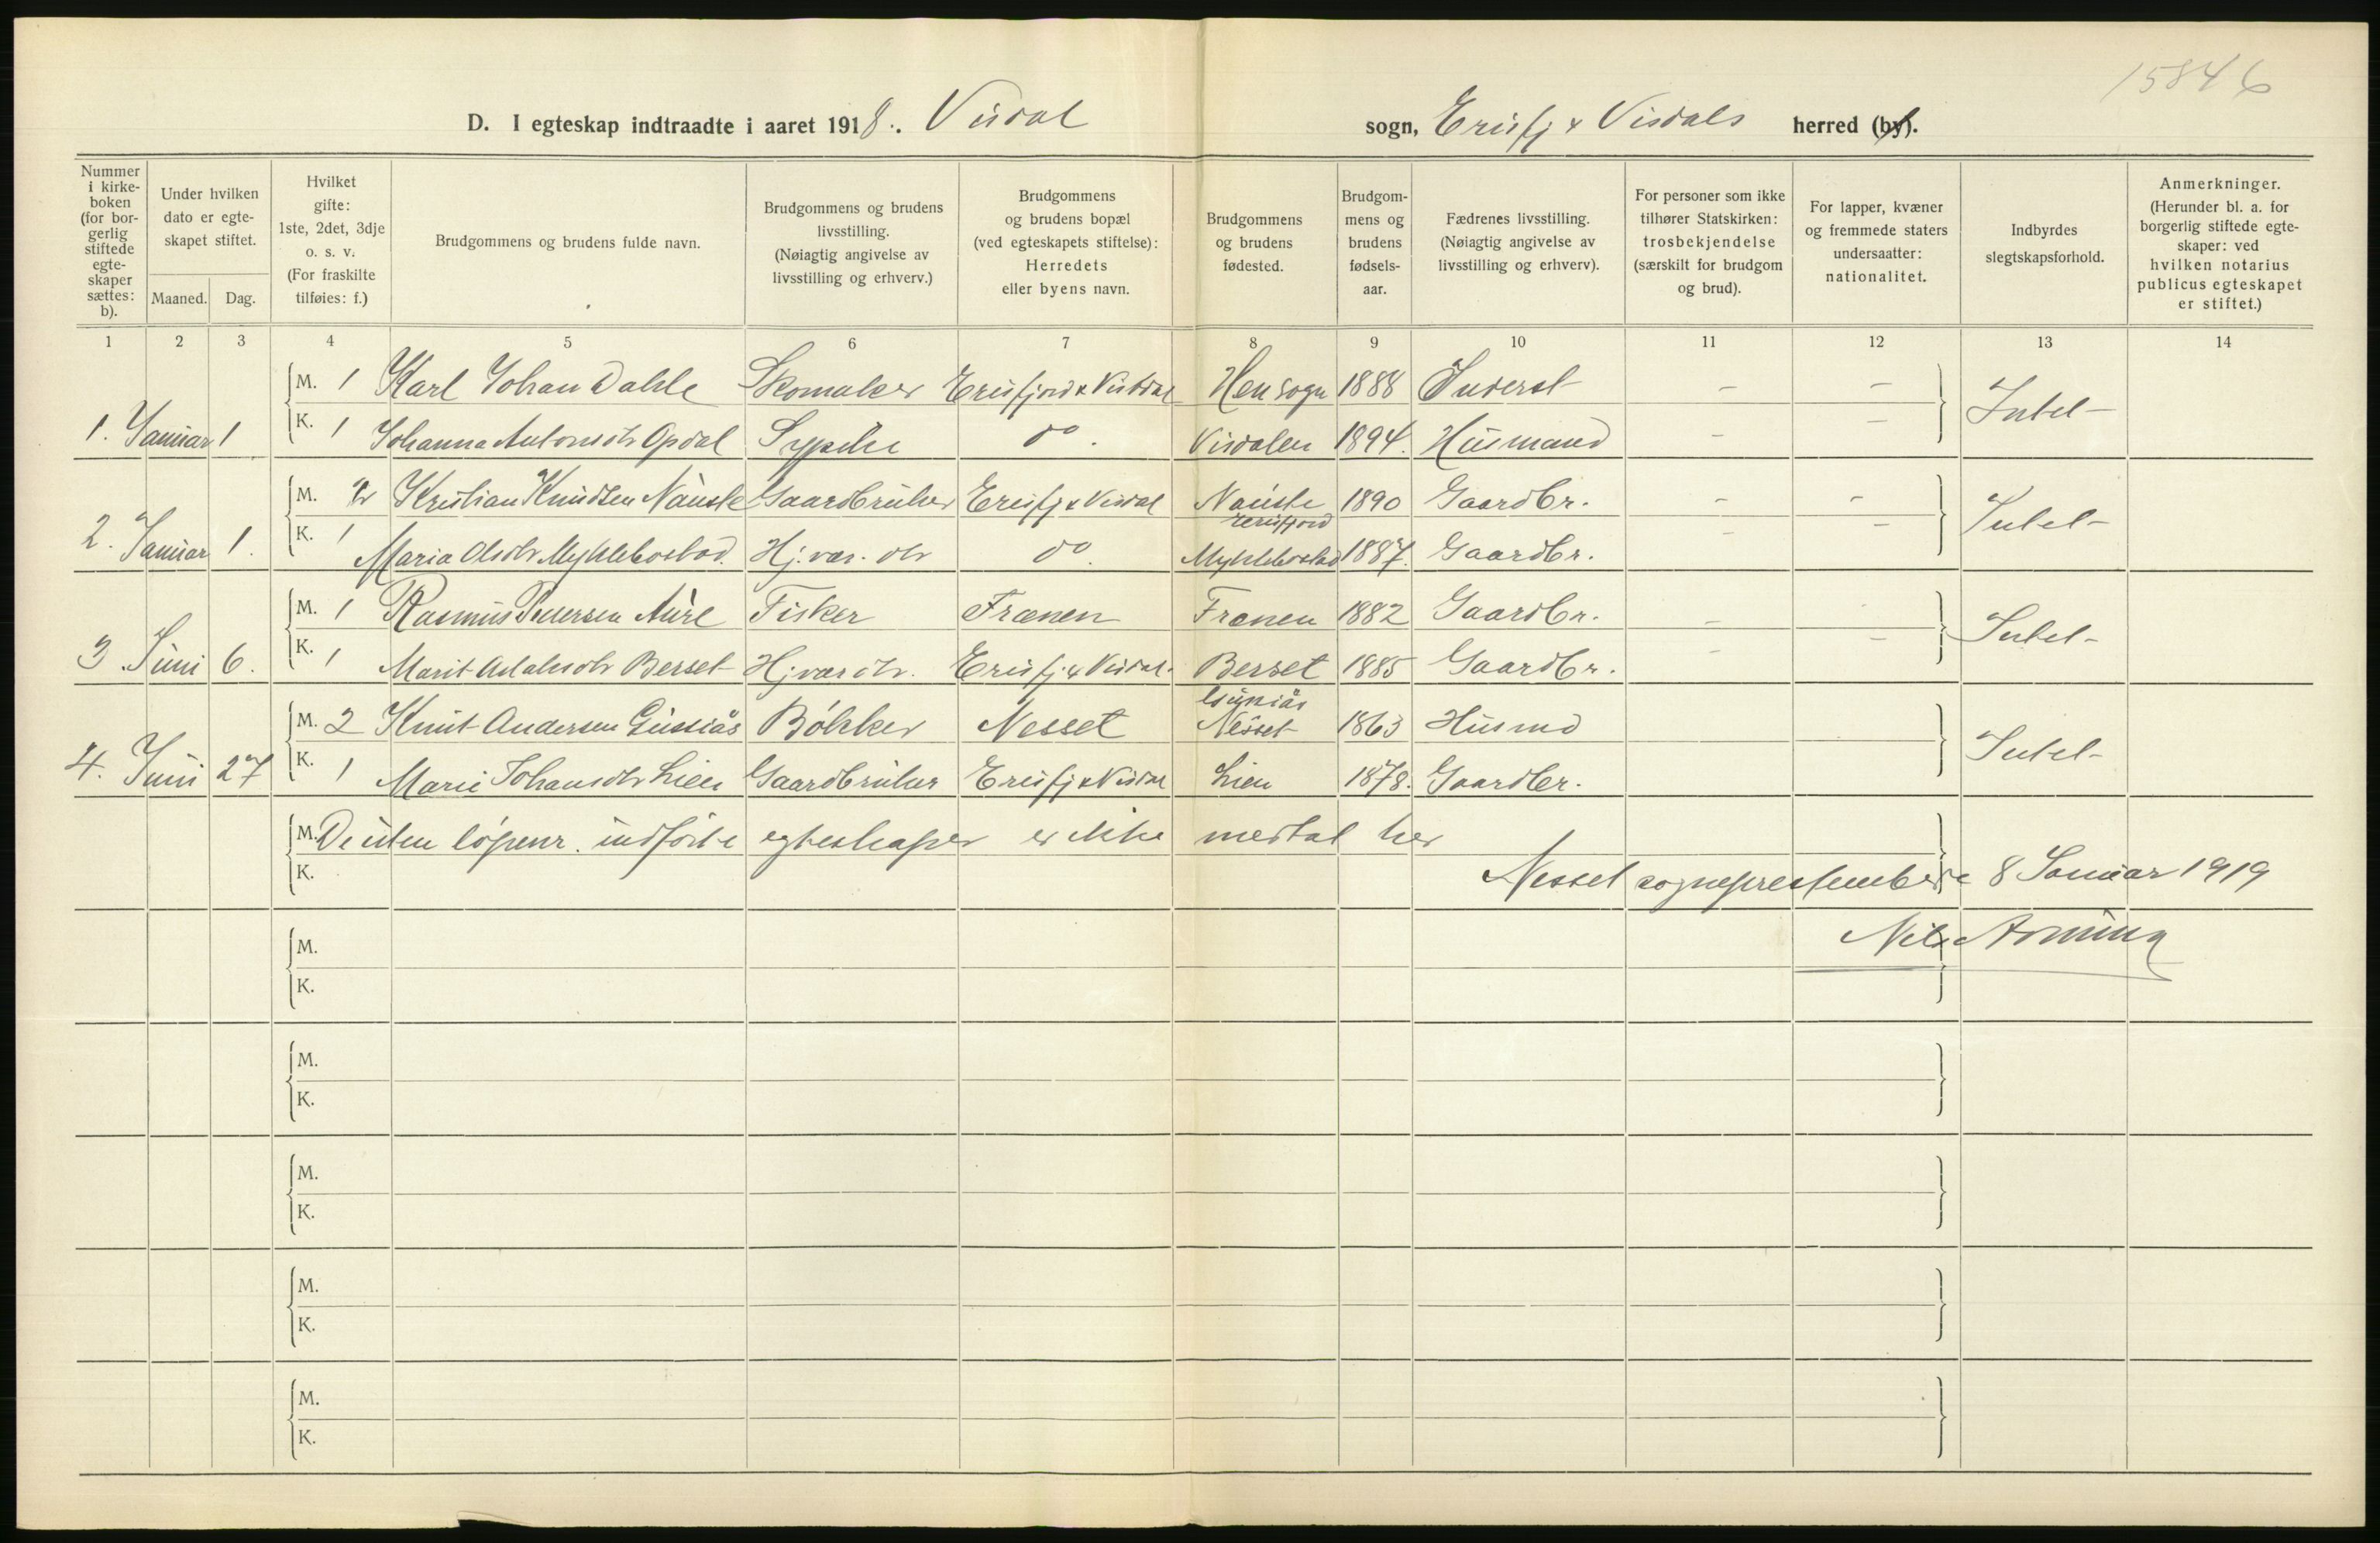 15846
D. I egteskap indtraadte i aaret 1918. Visdal sogn, Erisfj & Visdals herred (by).
Nummer i kirke-boken (for bor-gerlig stiftede egte-skaper sættes: b).
Under hvilken dato er egte-skapet stiftet.
Maaned. Dag.
Hvilket gifte: 1ste, 2det, 3dje o. s. v. (For fraskilte tilføies: f.)
Brudgommens og brudens fulde navn.
Brudgommens og brudens livsstilling. (Nøiagtig angivelse av livsstilling og erhverv.)
Brudgommens og brudens bopæl (ved egteskapets stiftelse): Herredets eller byens navn.
Brudgommens og brudens fødested.
Brudgom-mens og brudens fødsels-aar.
Fædrenes livsstilling. (Nøiagtig angivelse av livsstilling og erhverv).
For personer som ikke tilhører Statskirken: trosbekjendelse (særskilt for brudgom og brud).
For lapper, kvæner og fremmede staters undersaatter: nationalitet.
Indbyrdes slegtskapsforhold.
Anmerkninger. (Herunder bl. a. for borgerlig stiftede egte-skaper: ved hvilken notarius publicus egteskapet er stiftet.)
1 2 3 4 5 6 7 8 9 10 11 12 13 14
M. 1 Karl Johan Dahle Skomaker Erisfjord & Visdal Hen sogn 1888 Inderst – –
1. Januar 1 K. 1 Johanna Antonsdtr Opdal Sypike do. Visdalen 1894. Husmand – – Intet –
M. Kristian Knudsen Nauste Gaardbruker Erisfj & Visdal Nauste Erisfjord 1890 Gaardbr. – –
2. Januar 1. K. 1 Maria Olsdtr Myklebostad. Hj. vær. dtr do. Myklebostad 1887. Gaardbr. – – Intet –
M. 1 Rasmus Pedersen Aure Fisker Frænen Frænen 1882 Gaardbr. –
3. Juni 6. K. 1 Marit Adalsdtr Berset Hj vær dtr. Erisfj. & Visdal. Berset 1885 Gaardbr. – – Intet –
M. 2 Knut Andersen Gussiås Bøkker Nesset Gussiås Nesset 1863 Husmd
4. Juni 27 K. 1 Marie Johansdtr Lien Gaardbruker Erisfj & Visdal Lien 1878. Gaardbr. Intet –
M. De uten løpenr. indførte egteskaper er ikke medtat her
K. Nesset sogneprestembede 8 Januar 1919
M. Nils
K.
M.
K.
M.
K.
M.
K.
M.
K.